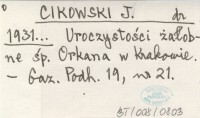 CIKOWSKI J. dr
1931... Uroczystości żałob-
ne śp. Orkana w Krakowie.
– Gaz. Podh. 19, nr 21.
BT/008/0803